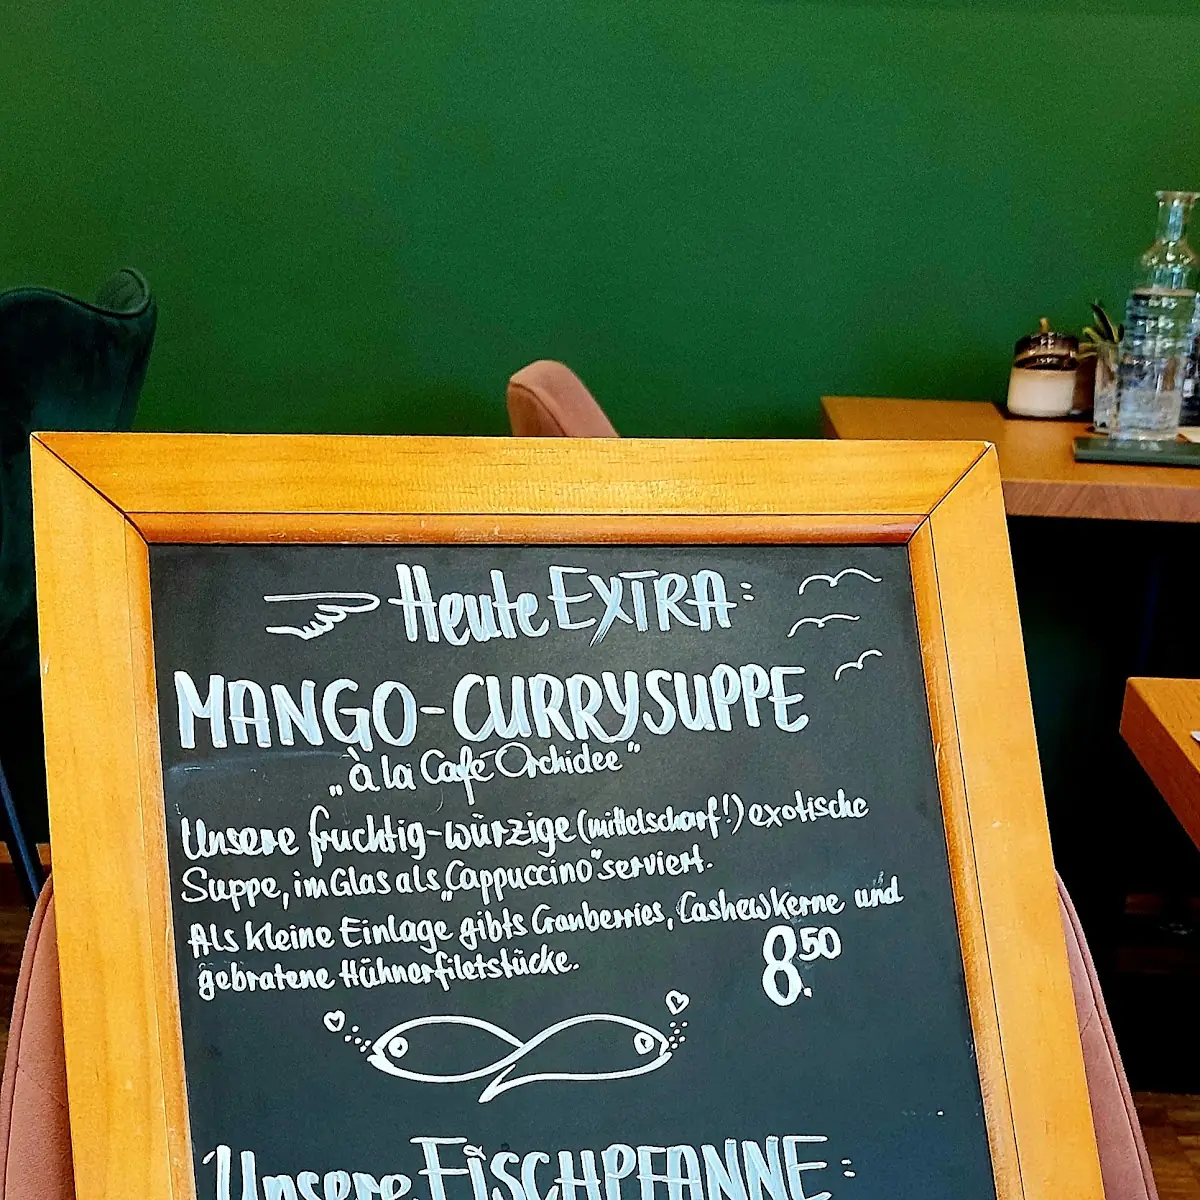 Heute EXTRA:
MANGO-CURRYSUPPE
„à la Café Orchidee"
Unsere fruchtig-würzige (mittelscharf!) exotische
Suppe, im Glas als „Cappuccino" serviert.
Als kleine Einlage gibts Cranberries, Cashewkerne und
gebratene Hühnerfiletstücke.
8.50
Unsere FISCHPFANNE: